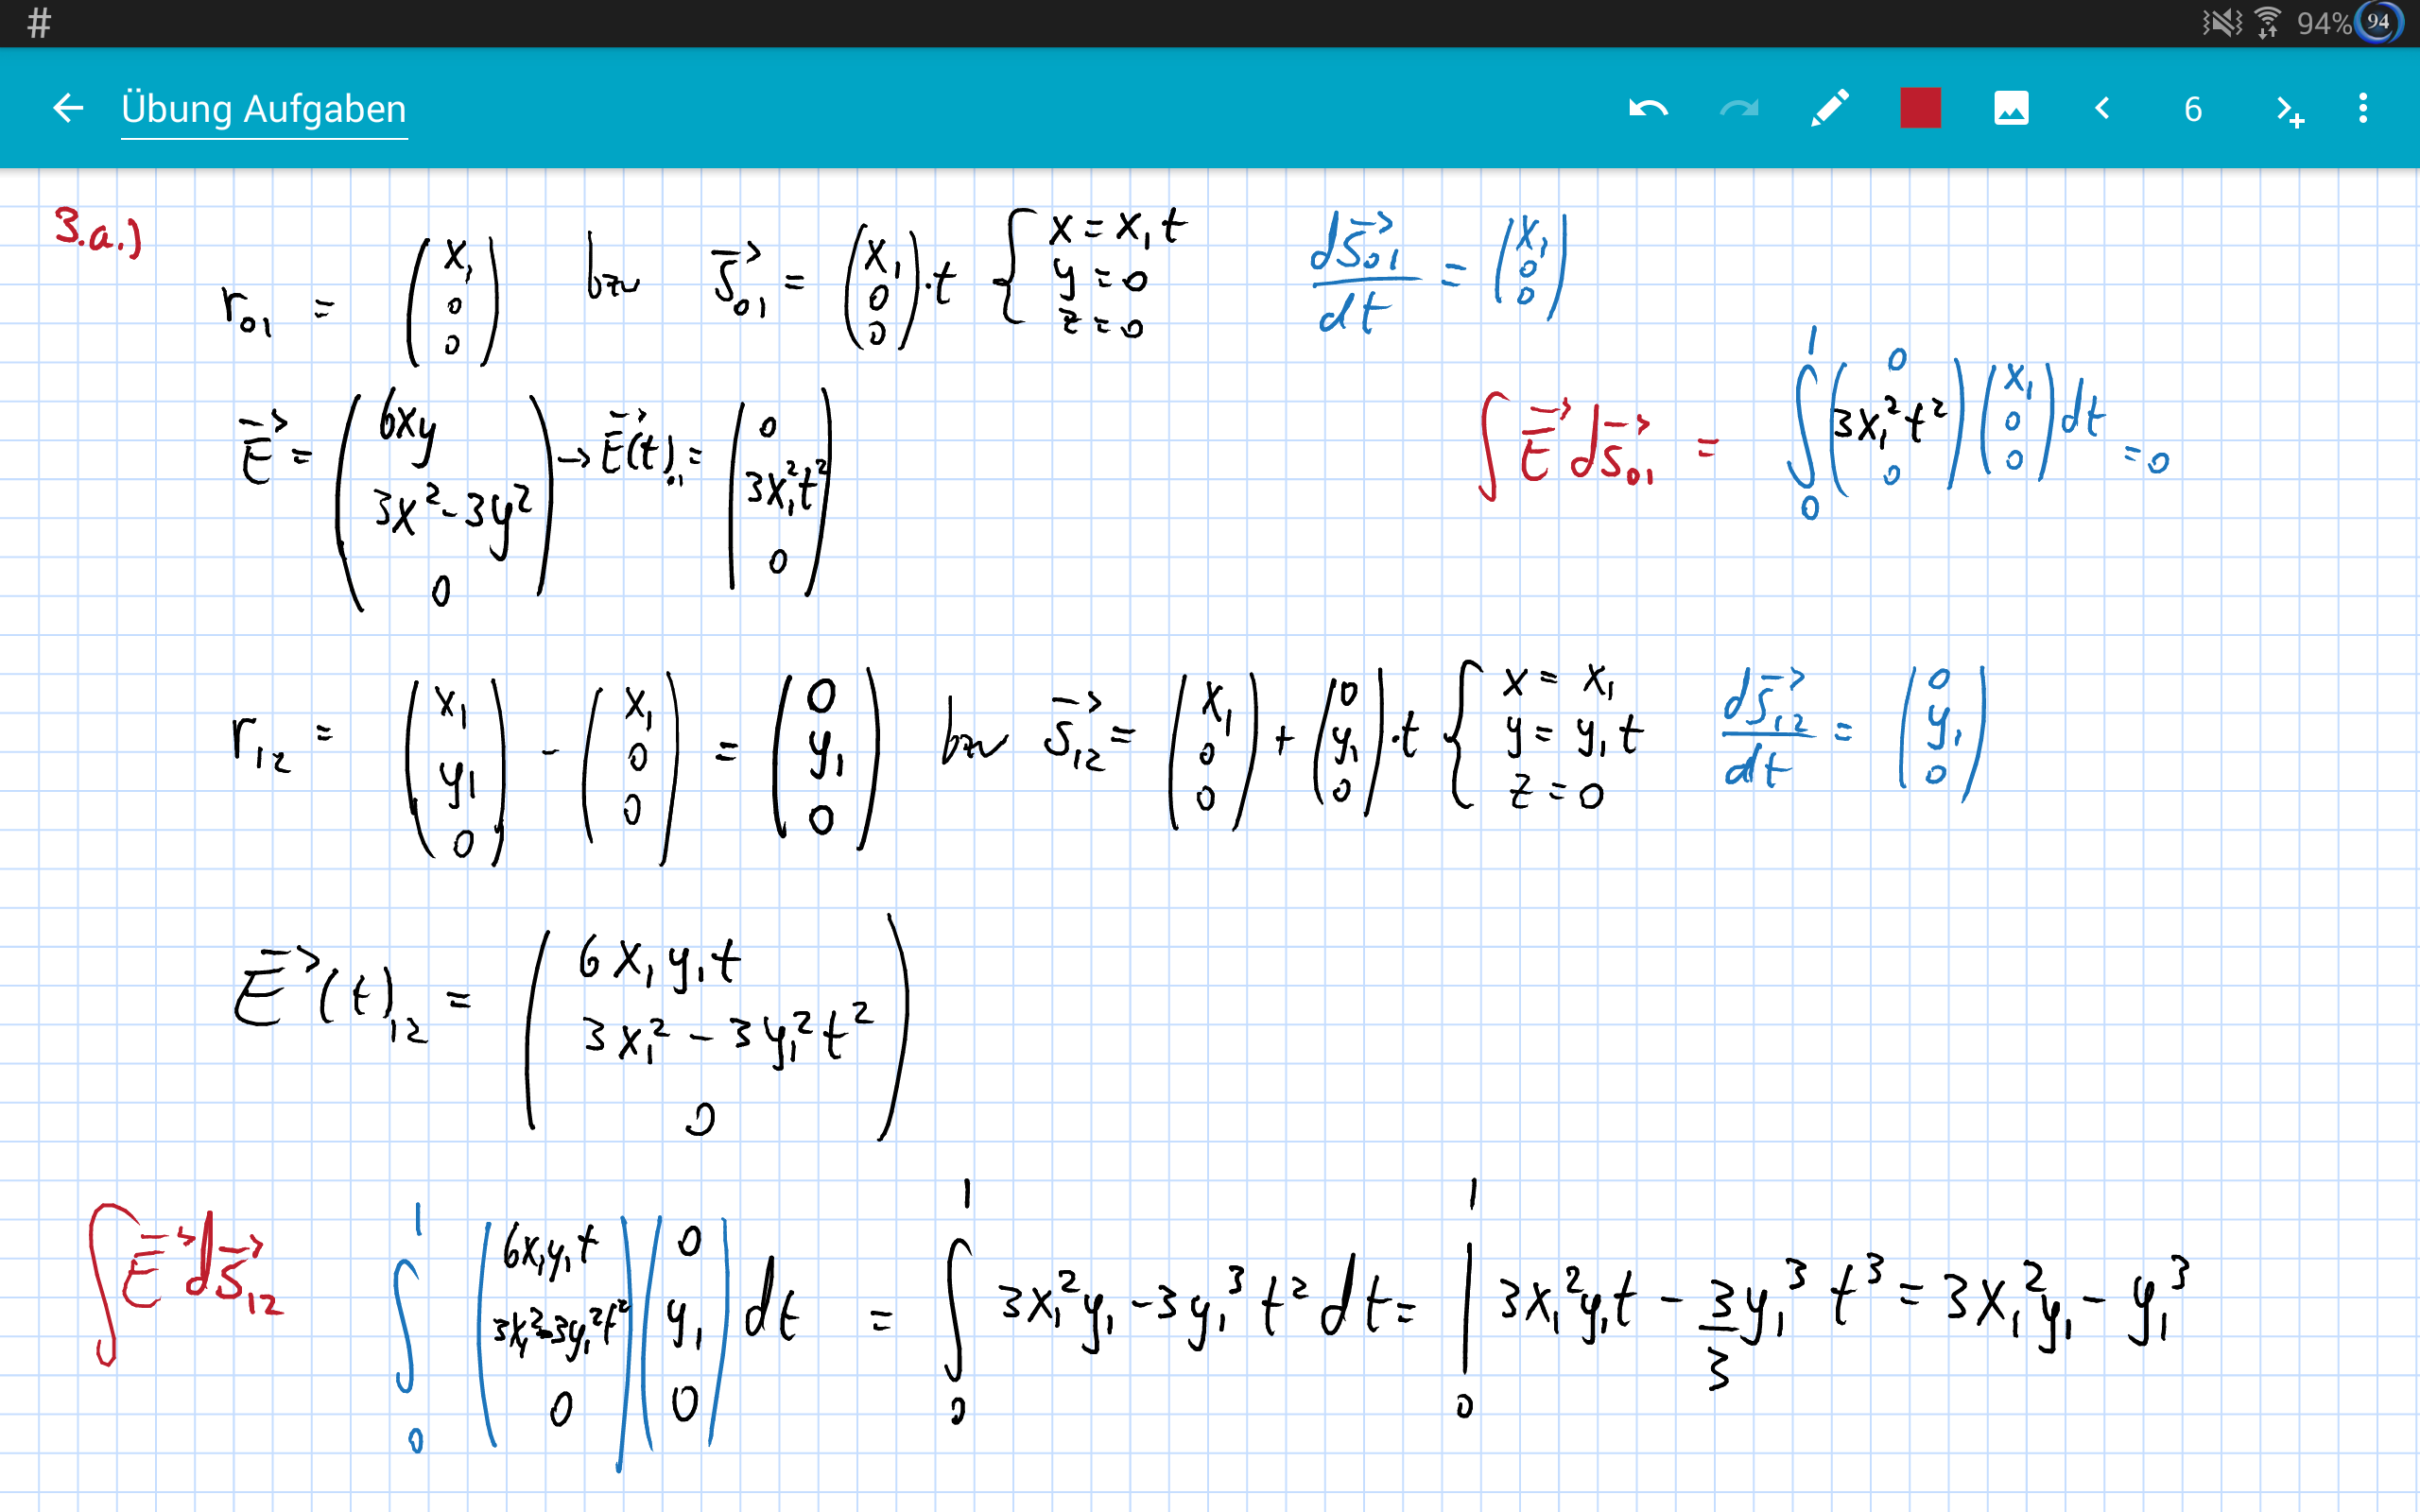 #
94%
94
Übung Aufgaben
6
3.a.)
r₀₁ = (x₁ 0 0) bzw s⃗₀₁ = (x₁ 0 0)·t { x = x₁t y = 0 z = 0
ds⃗₀₁/dt = (x₁ 0 0)
E⃗ = (6xy 3x²-3y² 0) → E⃗(t)₀₁ = (0 3x₁²t² 0)
∫ E⃗ ds⃗₀₁ = ∫₀¹ (0 3x₁²t² 0) (x₁ 0 0) dt = 0
r₁₂ = (x₁ y₁ 0) - (x₁ 0 0) = (0 y₁ 0) bzw s⃗₁₂ = (x₁ 0 0) + (0 y₁ 0)·t { x = x₁ y = y₁t z = 0
ds⃗₁₂/dt = (0 y₁ 0)
E⃗(t)₁₂ = (6x₁y₁t 3x₁² - 3y₁²t² 0)
∫ E⃗ ds⃗₁₂ ∫₀¹ (6x₁y₁t 3x₁²-3y₁²t² 0) (0 y₁ 0) dt = ∫₀¹ 3x₁²y₁ - 3y₁³t² dt = |₀¹ 3x₁²y₁t - 3/3 y₁³t³ = 3x₁²y₁ - y₁³